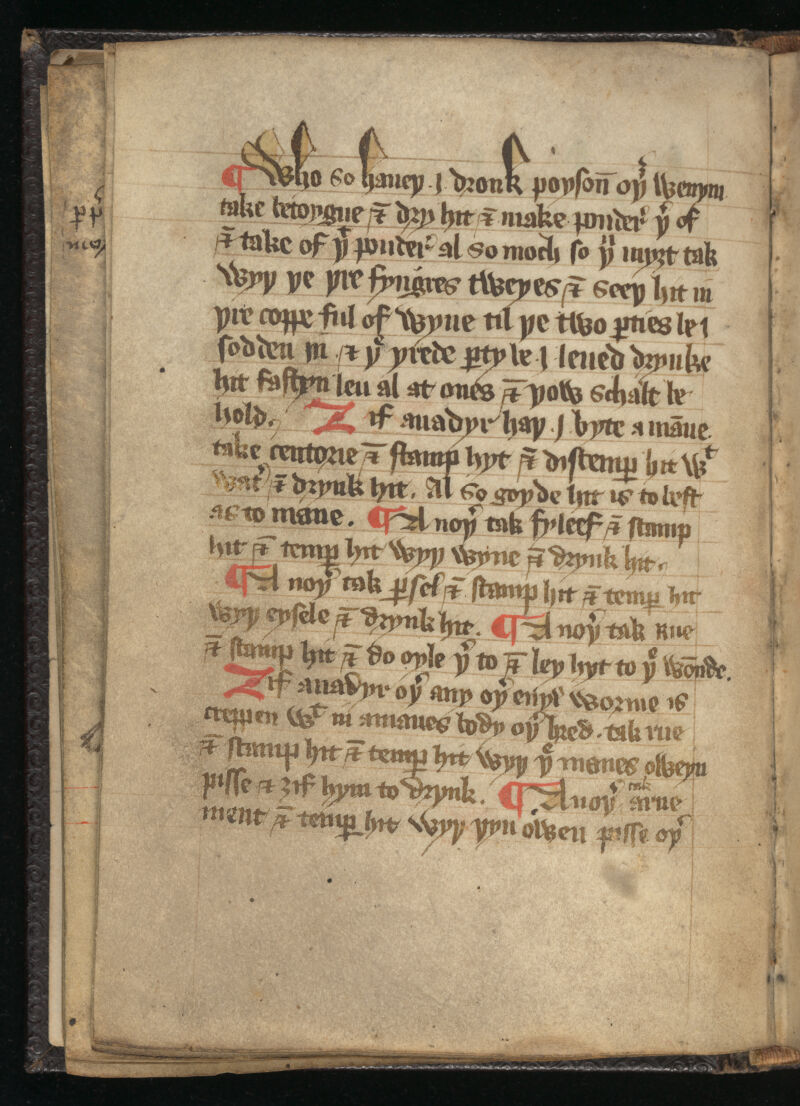 ¶ Who so haueþ .i dronk poyson oþͬ wenym
take betoygne & dry hit & make pouder þͬ of
& take of þͭ pouder al so moch so þͧ myȝt tak
wyþ þe þre fyngres tweyes & seeþ hit in
þre coppe ful of wyne til þe two ꝑties be i
sodden in . & þͤ þrede ꝑty be .i leued drynke
hit fastyn leu al at ones & þow schalt be
hold. Ȝif anadyr haþ .i byte a māne
take centorie & stamp hyt & distemꝑ hit wͭ
watͬ & drynk hit. Al so goyde hit is to best
as to mane. ¶ A noþͬ tak fyleef & stamp
hit & temꝑ hit wyþ wyne & drynk hit.
¶ A noþͬ tak ꝑsel & stamp hit & temꝑ hit
wyþ eysele & drynk hit. ¶ A noþͬ tak rue
& stamp hit & do oyle þͬ to & ley hyt to þͤ wōnde.
Ȝif anadyr oþͬ any oþͬ euyl worme is
creppen wͭ in amanes body oþͬ hred. tak rue
& stamp hit & temꝑ hit wyþ þͤ manes oweyn
pisse & ȝif hym to drynk. ¶ A noþͬ tak arne
ment & temꝑ hit wyþ þyn owen pisse oþͬ